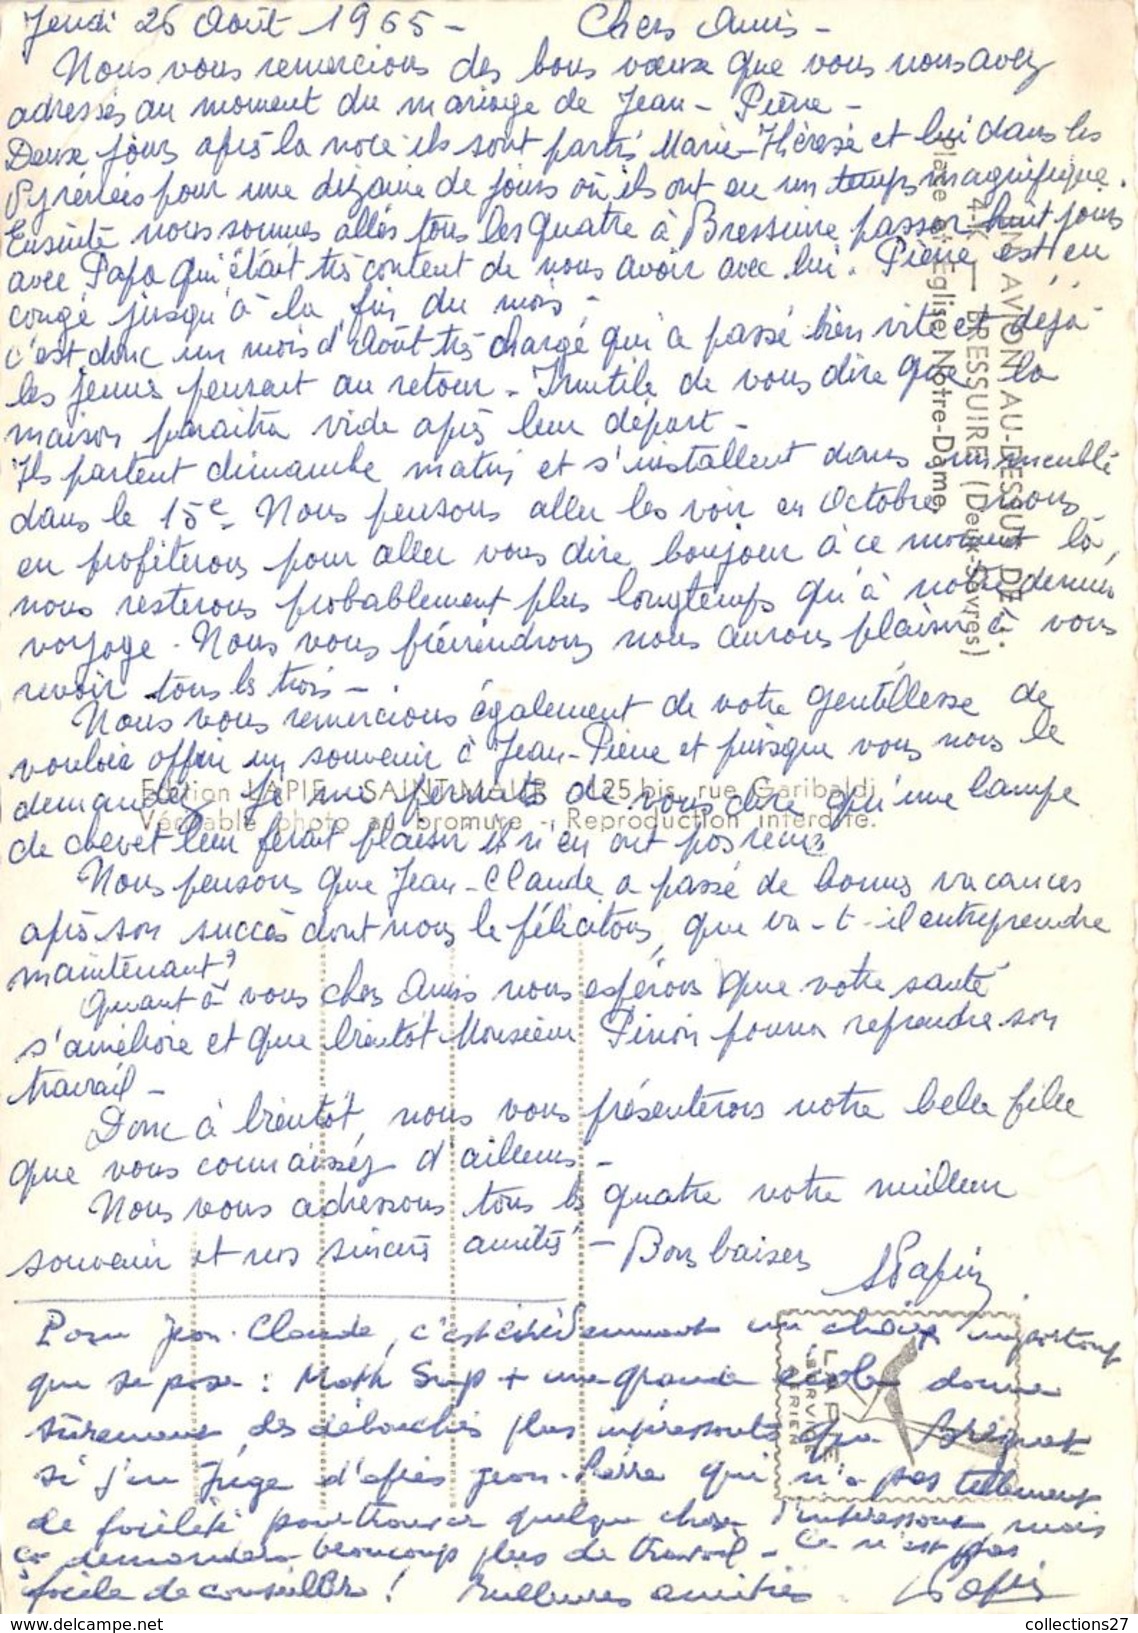 Jeudi 26 Août 1965 - Chers Amis -
Nous vous remercions des bons voeux que vous nous avez
adressés au moment du mariage de Jean - Pierre -
Deux jours après la noce ils sont partis Marie-Thérèse et lui dans les
Pyrénées pour une dizaine de jours où ils ont eu un temps magnifique.
Ensuite nous sommes allés tous les quatre à Bressuire passer huit jours
avec Papa qui était très content de nous avoir avec lui. Pierre est en
congé jusqu'à la fin du mois,
c'est donc un mois d'Août très chargé qui a passé bien vite et déjà
les jeunes pensent au retour - Inutile de vous dire que la
maison paraîtra vide après leur départ -
Ils partent dimanche matin et s'installent dans un meublé
dans le 15e - Nous pensons aller les voir en Octobre, nous
en profiterons pour aller vous dire bonjour à ce moment là,
nous resterons probablement plus longtemps qu'à notre dernier
voyage - Nous vous préviendrons nous aurons plaisir à vous
revoir tous les trois -
Nous vous remercions également de votre gentillesse de
vouloir offrir un souvenir à Jean-Pierre et puisque vous nous le
demandez je me permets de vous dire qu'une lampe
de chevet leur ferait plaisir ils n'en ont pas reçu
Nous pensons que Jean-Claude a passé de bonnes vacances
après son succès dont nous le félicitons, que va-t-il entreprendre
maintenant?
Quant à vous chers Amis nous espérons que votre santé
s'améliore et que bientôt Monsieur Pinon pourra reprendre son
travail -
Donc à bientôt, nous vous présenterons notre belle fille
que vous connaissez d'ailleurs -
Nous vous adressons tous les quatre notre meilleur
souvenir et nos sincères amitiés - Bons baisers
Papin
Pour Jean-Claude, c'est évidemment un choix important
que se pose : Math Sup + une grande école donne
sûrement des débouchés plus intéressants que Breguet
si j'en juge d'après Jean-Pierre qui n'a pas tellement
de facilité pour trouver quelque chose d'intéressant, mais
ça demandera beaucoup plus de travail - Ce n'est pas
facile de conseiller ! Meilleures amitiés Papin
EN AVION AU-DESSUS DE...
4-K — BRESSUIRE (Deux-Sèvres)
Place et Eglise Notre-Dame
Edition LAPIE - SAINT-MAUR - 125 bis, rue Garibaldi
Véritable photo au bromure - Reproduction interdite.
LAPIE
SERVICE
AERIEN
collections27